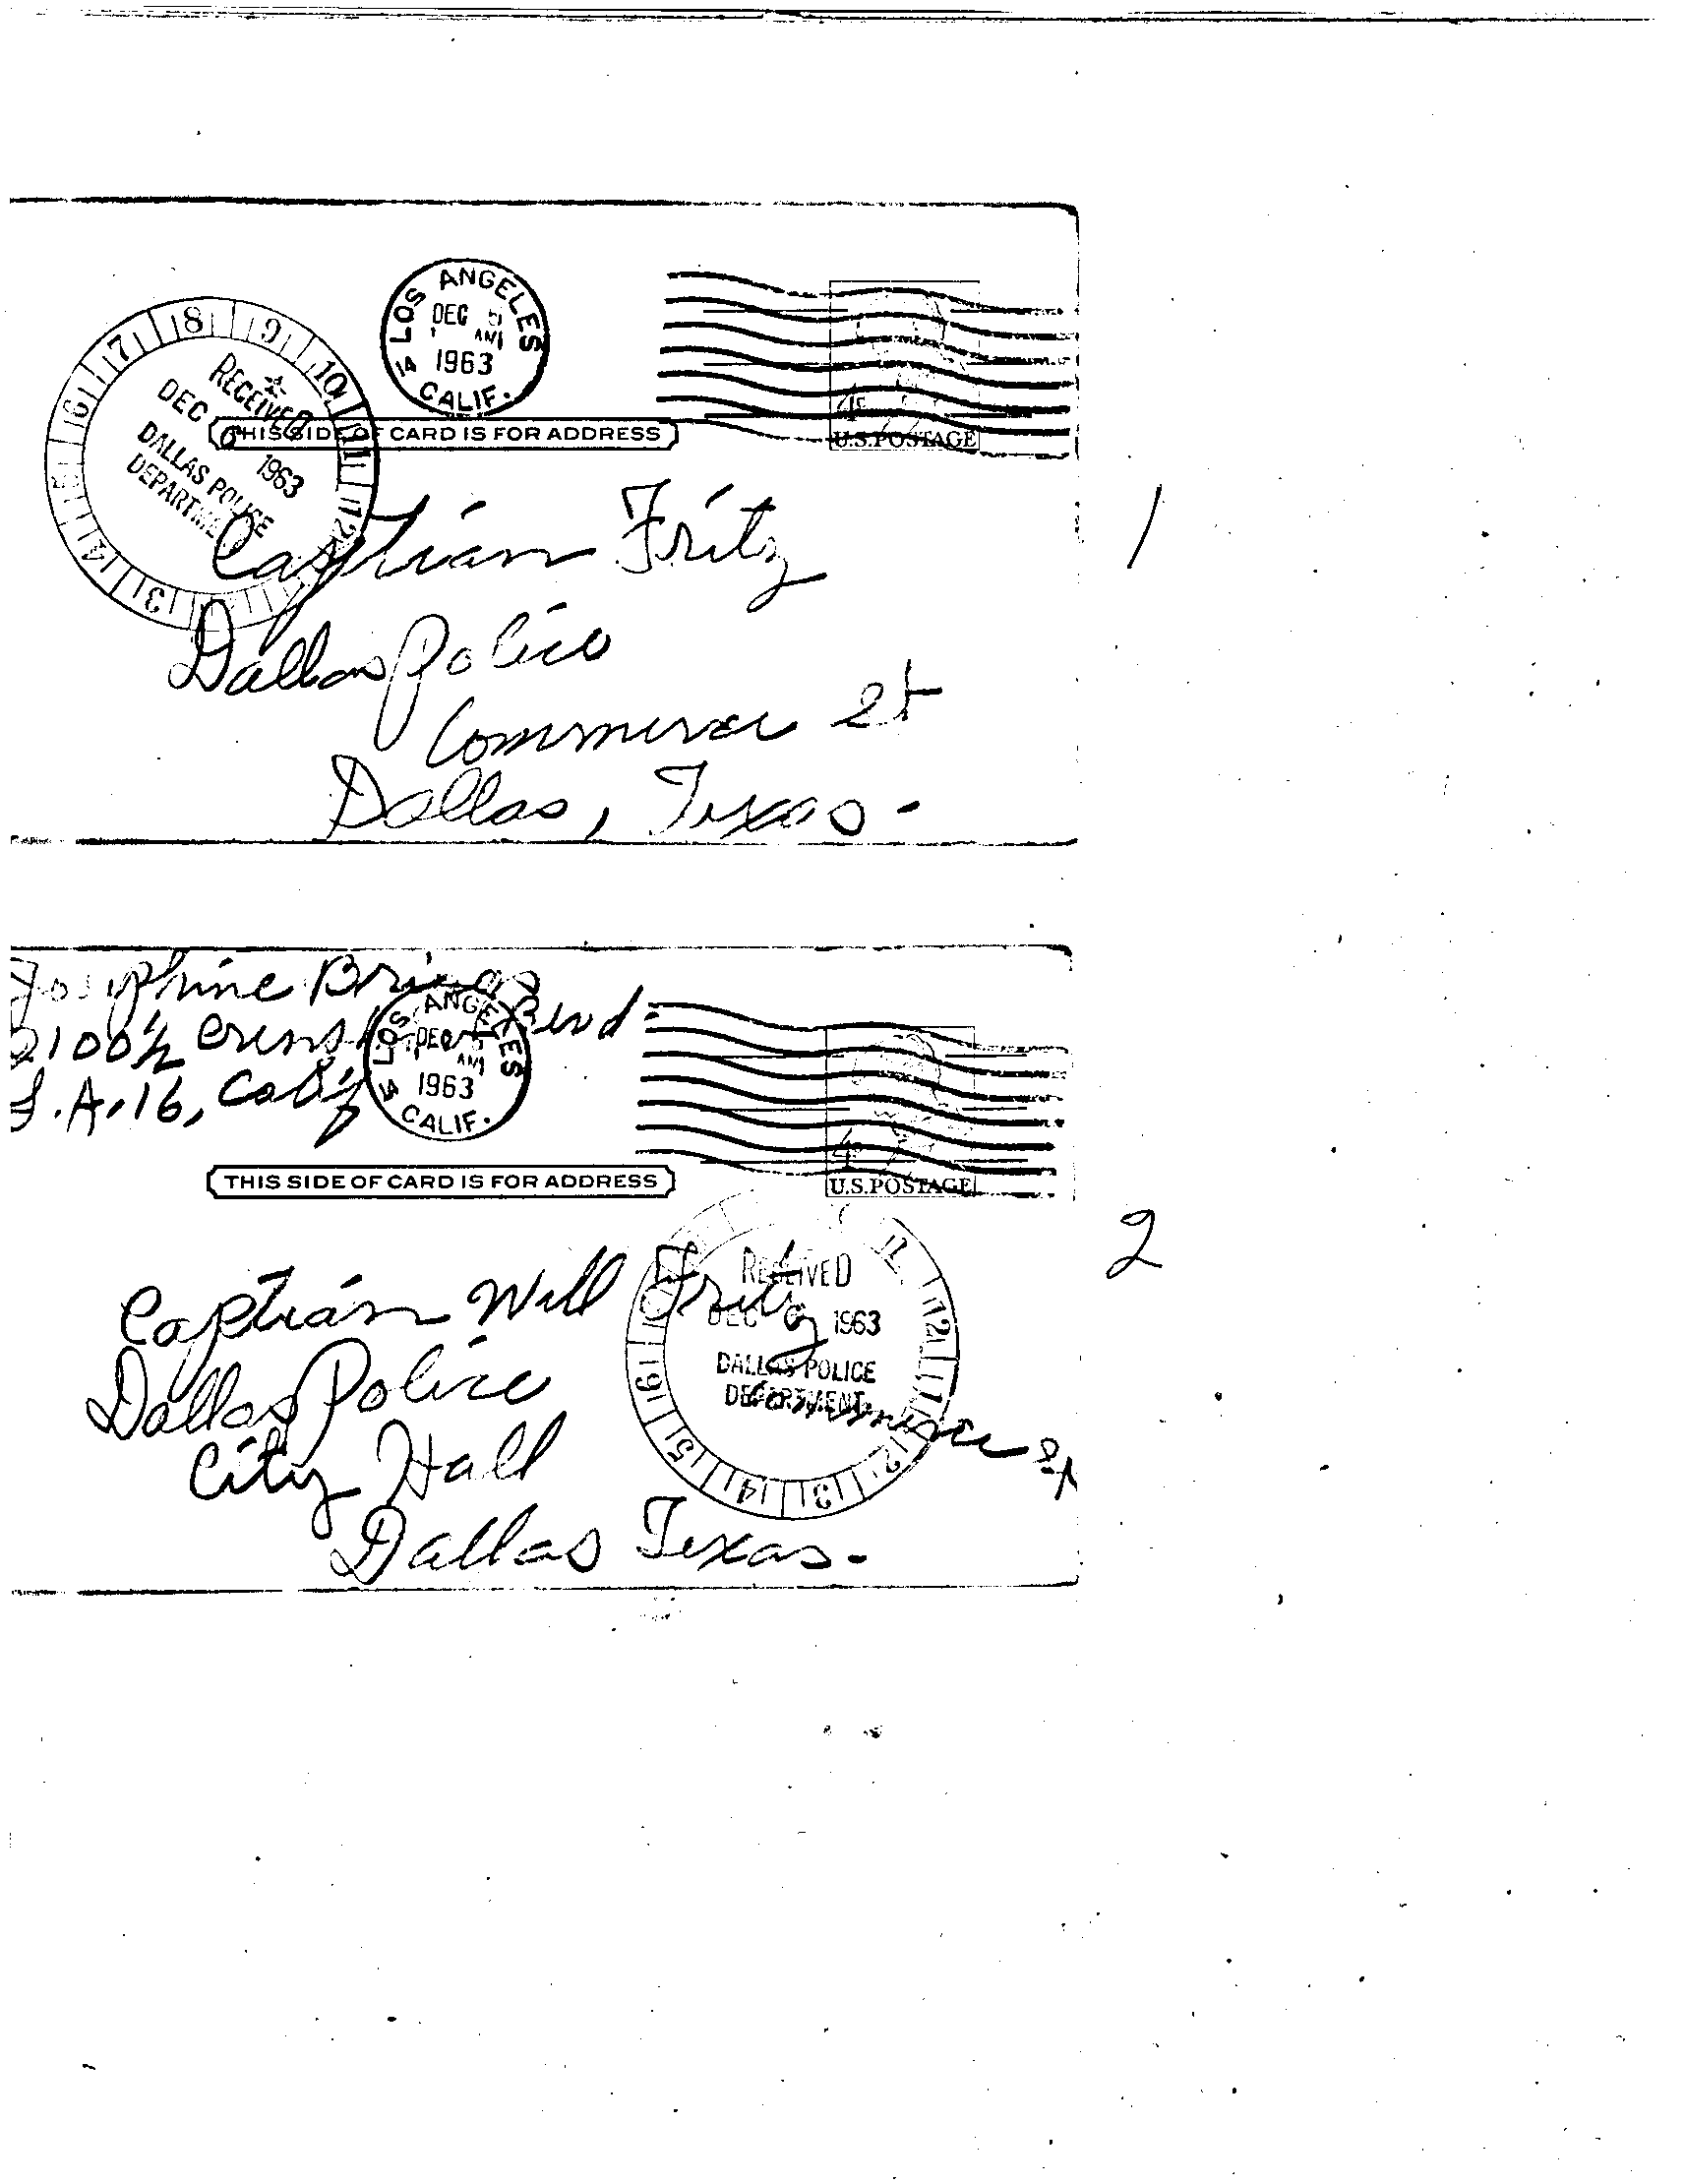 LOS ANGELES
DEC 5
AM
1963
14 CALIF.
RECEIVED
DEC 6 1963
DALLAS POLICE
DEPARTMENT
THIS SIDE OF CARD IS FOR ADDRESS
4¢
U.S.POSTAGE
Captian Fritz
Dallas Police
Commerce St
Dallas, Texas-
1
Josephine Briggs
2100½ Crenshaw Blvd
L.A. 16, Calif
LOS ANGELES
DEC 5
AM
1963
14 CALIF.
4¢
U.S.POSTAGE
THIS SIDE OF CARD IS FOR ADDRESS
RECEIVED
DEC 6 1963
DALLAS POLICE
DEPARTMENT
Captian Will Fritz
Dallas Police
Commerce St
City Hall
Dallas Texas-
2